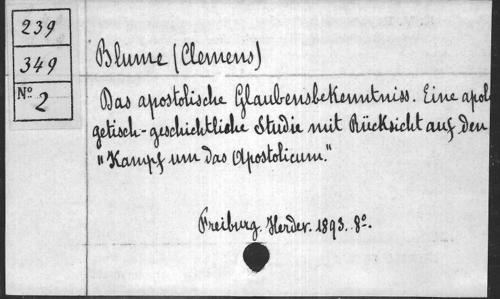 239
349
No 2
Blume (Clemens)
Das apostolische Glaubensbekenntniss. Eine apol
getisch-geschichtliche Studie mit Rücksicht auf den
"Kampf um das Apostolicum."
Freiburg. Herder. 1893. 8o.